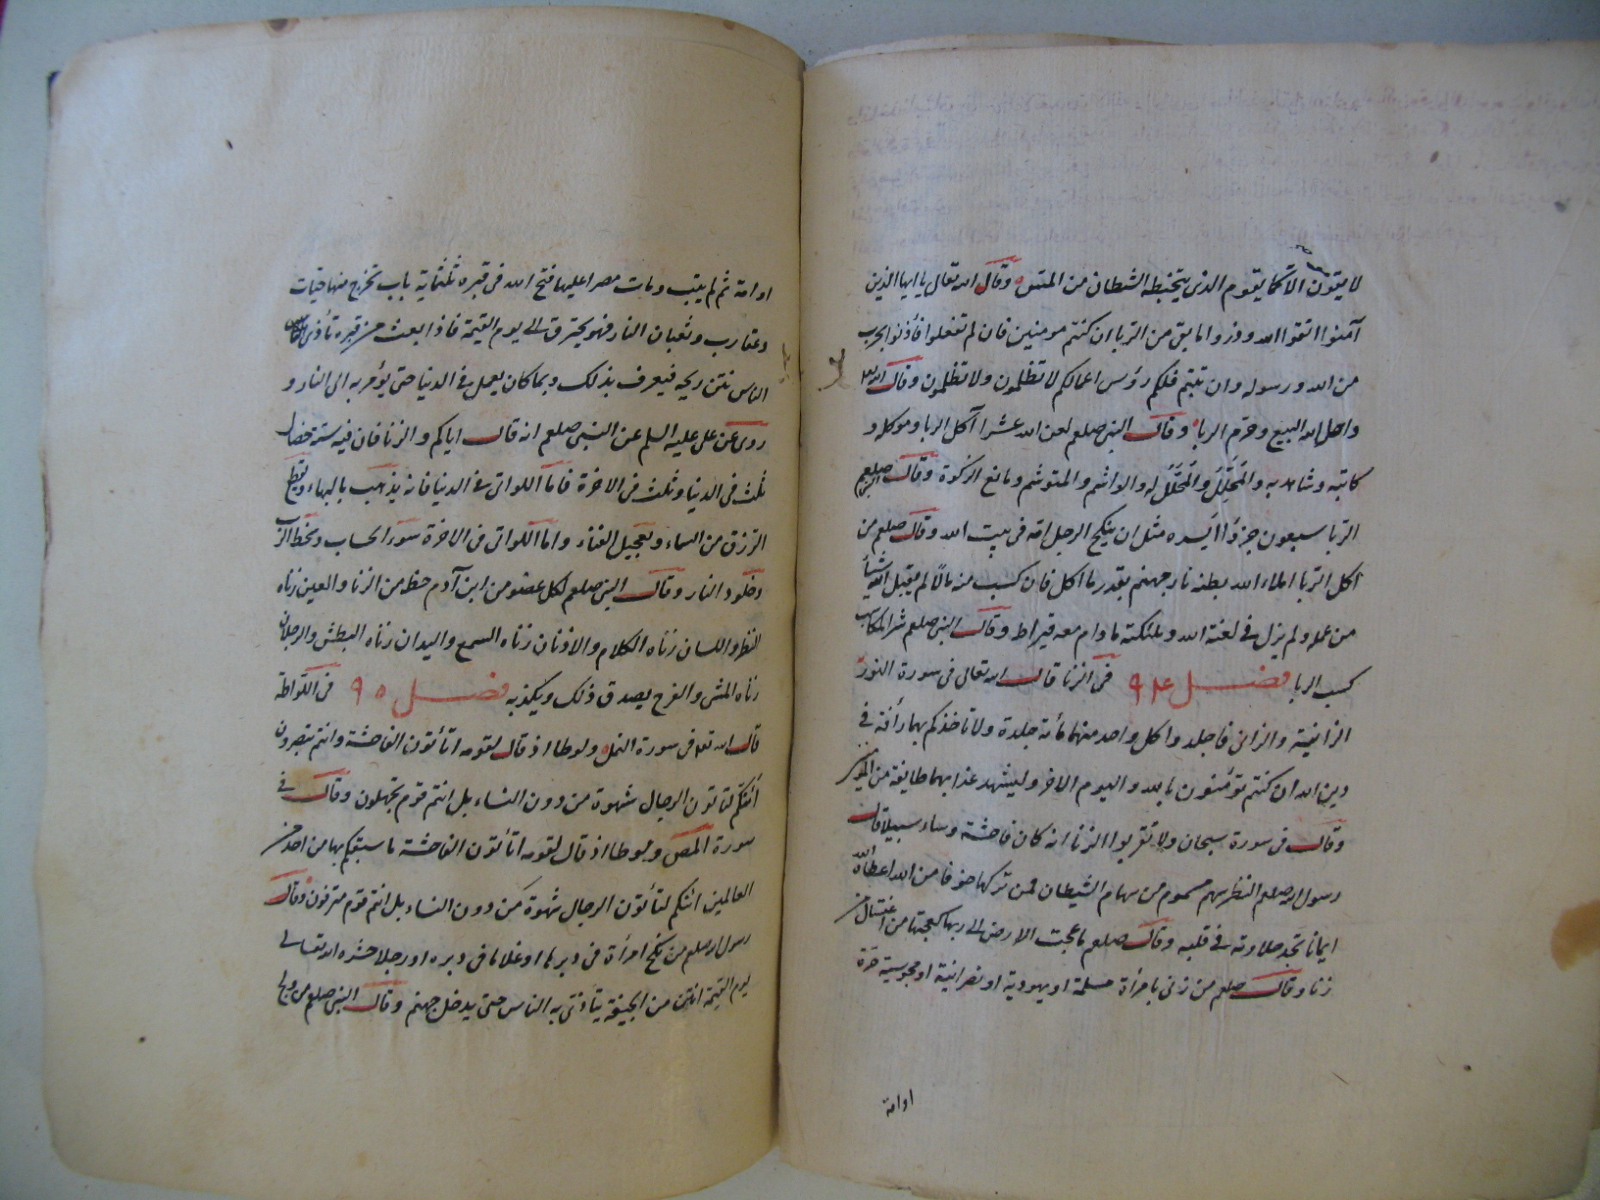 لا يقومون الا كما يقوم الذى يتخبطه الشطان من المس وقال الله تعالى يا ايها الذين
آمنوا اتقوا الله وذروا ما بقى من الربا ان كنتم مومنين فان لم تفعلوا فأذنوا بحرب
من الله ورسوله وان تبتم فلكم رؤس اموالكم لا تظلمون ولا تظلمون وقال الله تعه
واحل الله البيع وحرم الربا وقال النبى صلعم لعن الله عشرا آكل الربا وموكله و
كاتبه وشاهديه والمحلل والمحلل له والواشم والمتوشم ومانع الزكوة وقال النبى صلعم
الربا سبعون جزؤا أيسره مثل ان ينكح الرجل امه فى بيت الله وقال صلعم من
اكل الربا املاء الله بطنه نار جهنم بقدر ما اكل فان كسب منه مالا لم يقبل الله شيأ
من عمله ولم يزل فى لعنة الله وملئكته مادام معه قيراط وقال النبى صلعم شر المكاسب
كسب الربا فصل ٩٤ فى الزنا قال الله تعالى فى سورة النور
الزانية والزانى فاجلدوا كل واحد منهما مأئة جلدة ولا تاخذكم بهما رأفة فى
دين الله ان كنتم تؤمنون بالله واليوم الاخر وليشهد عذابهما طايفة من المؤمنين
وقال فى سورة سبحان ولا تقربوا الزنا انه كان فاحشة وساء سبيلا قال
رسول الله صلعم النظر سهم مسموم من سهام الشيطان فمن تركها خوفا من الله اعطاه الله
ايمانا تجد حلاوته فى قلبه وقال صلعم ما عجت الارض الى ربها كعجتها من اغتسال من
زنا وقال صلعم من زنى بامرأة مسلمة او يهودية او نصرانية او مجوسية حرة
او امة
او امة ثم لم يتب ومات مصرا عليها فتح الله فى قبره ثلثمأية باب تخرج منها حيات
وعقارب وثعبان النار فهو يحترق الى يوم القيمة فاذا بعث من قبره تأذى الناس
الناس نتن ريحه فيعرف بذلك وبما كان يعمل فى الدنيا حتى يؤمر به الى النار و
روى عن على عليه السلم عن النبى صلعم انه قال اياكم والزنا فان فيه ستة خصال
ثلث فى الدنيا وثلث فى الاخرة فاما اللواتى فى الدنيا فانه يذهب بالبهاء ويقطع
الرزق من السماء ويعجيل الفناء واما اللواتى فى الاخرة سوء الحساب وسخط الرب
وخلود النار وقال النبى صلعم لكل عضو من ابن آدم حظ من الزنا والعين زناه
النظر واللسان زناه الكلام والاذنان زناه السمع واليدان زناه البطش والرجلان
زناه المشى والفرج يصدق ذلك ويكذبه فصل ٩٥ فى اللواطة
قال الله تعه فى سورة النمل ولوطا اذ قال لقومه اتأتون الفاحشة وانتم تبصرون
أئنكم لتاتون الرجال شهوة من دون النساء بل انتم قوم تجهلون وقال فى
سورة المص ولوطا اذ قال لقومه اتأتون الفاحشة ما سبقكم بها من احد من
العالمين ائنكم لتأتون الرجال شهوة من دون النساء بل انتم قوم مسرفون وقال
رسول الله صلعم من نكح امرأة فى دبرها او غلاما فى دبره او رجلا حشره الله تعالى
يوم القيمة انتن من الجيفة يتأذى به الناس حتى يدخل جهنم وقال النبى صلعم من